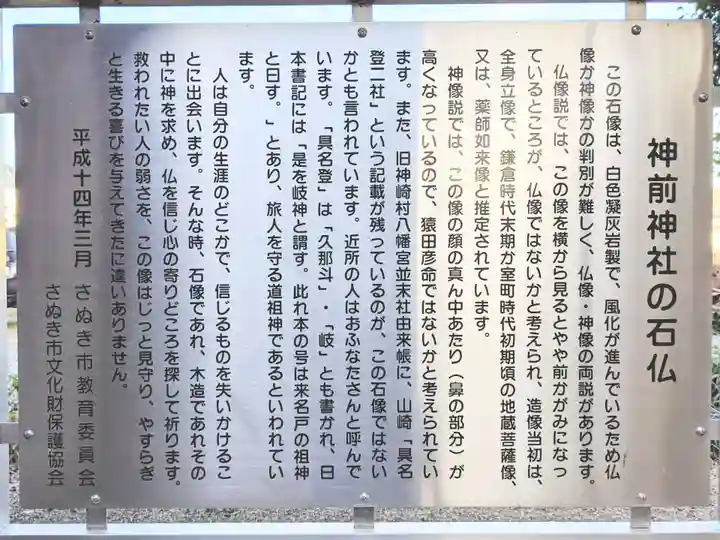 神前神社の石仏
この石像は、白色凝灰岩製で、風化が進んでいるため仏
像か神像かの判別が難しく、仏像・神像の両説があります。
仏像説では、この像を横から見るとやや前かがみになっ
ているところが、仏像ではないかと考えられ、造像当初は、
全身立像で、鎌倉時代末期か室町時代初期頃の地蔵菩薩像、
又は、薬師如来像と推定されています。
神像説では、この像の顔の真ん中あたり（鼻の部分）が
高くなっているので、猿田彦命ではないかと考えられてい
ます。また、旧神崎村八幡宮並末社由来帳に、山崎「具名
登二社」という記載が残っているのが、この石像ではない
かとも言われています。近所の人はおふなたさんと呼んで
います。「具名登」は「久那斗」・「岐」とも書かれ、日
本書記には「是を岐神と謂す。此れ本の号は来名戸の祖神
と日す。」とあり、旅人を守る道祖神であるといわれてい
ます。
人は自分の生涯のどこかで、信じるものを失いかけるこ
とに出会います。そんな時、石像であれ、木造であれその
中に神を求め、仏を信じ心の寄りどころを探して祈ります。
救われたい人の弱さを、この像はじっと見守り、やすらぎ
と生きる喜びを与えてきたに違いありません。
平成十四年三月 さぬき市教育委員会
さぬき市文化財保護協会